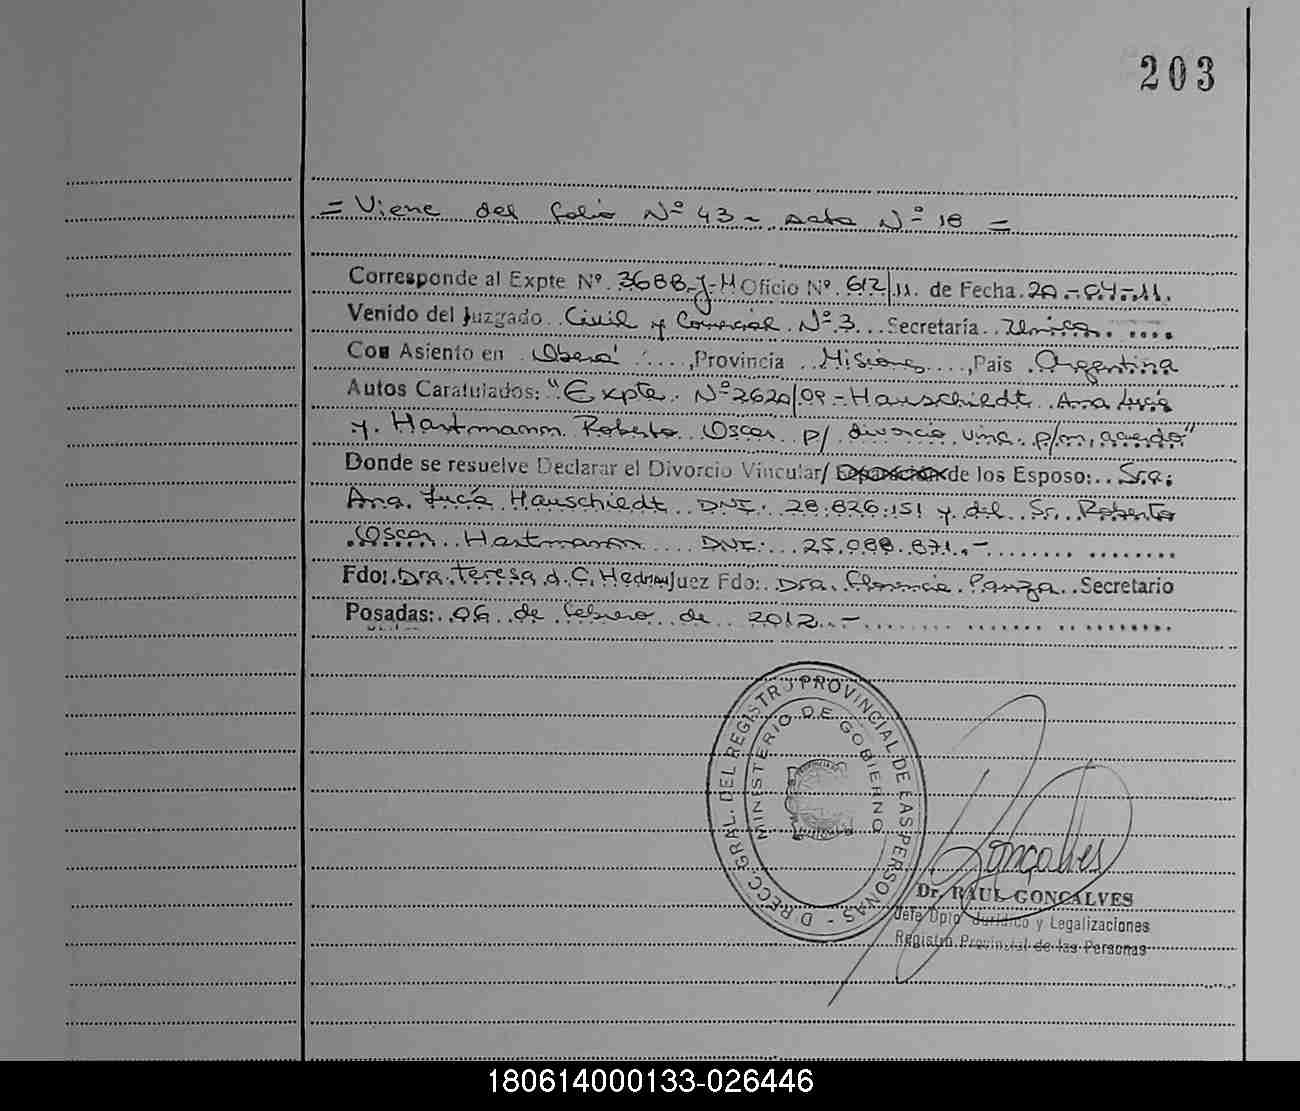 203
= Viene del folio Nº 43 - acta Nº 18 =
Corresponde al Expte Nº. 3688-J-H Oficio Nº. 612/11. de Fecha. 20.-04-11.
Venido del Juzgado. Civil y Comercial Nº 3... Secretaría.. Unica.
Con Asiento en Oberá ...., Provincia .. Misiones ...., País . Argentina
Autos Caratulados: "Expte. Nº 2620/09 - Hauschiedt Ana Lucía
y Hartmann Roberto Oscar p/ divorcio vinc. p/m, acerdo"
Donde se resuelve Declarar el Divorcio Vincular/ Separación de los Esposo:.. Sra.
Ana Lucía Hauschiedt DNI. 28.826.151 y del Sr. Roberto
Oscar Hartmann DNI: 25.088.871.-
Fdo:. Dra. Teresa d. C. Juez Fdo:. Dra. Florencia Panza. Secretario
Posadas: 06 de febrero de 2012.-
DIRECC. GRAL. DEL REGISTRO PROVINCIAL DE LAS PERSONAS -
MINISTERIO DE GOBIERNO
Gonçalves
Dr. RAUL GONCALVES
Jefe Dpto Jurídico y Legalizaciones
Registro Provincial de las Personas
180614000133-026446